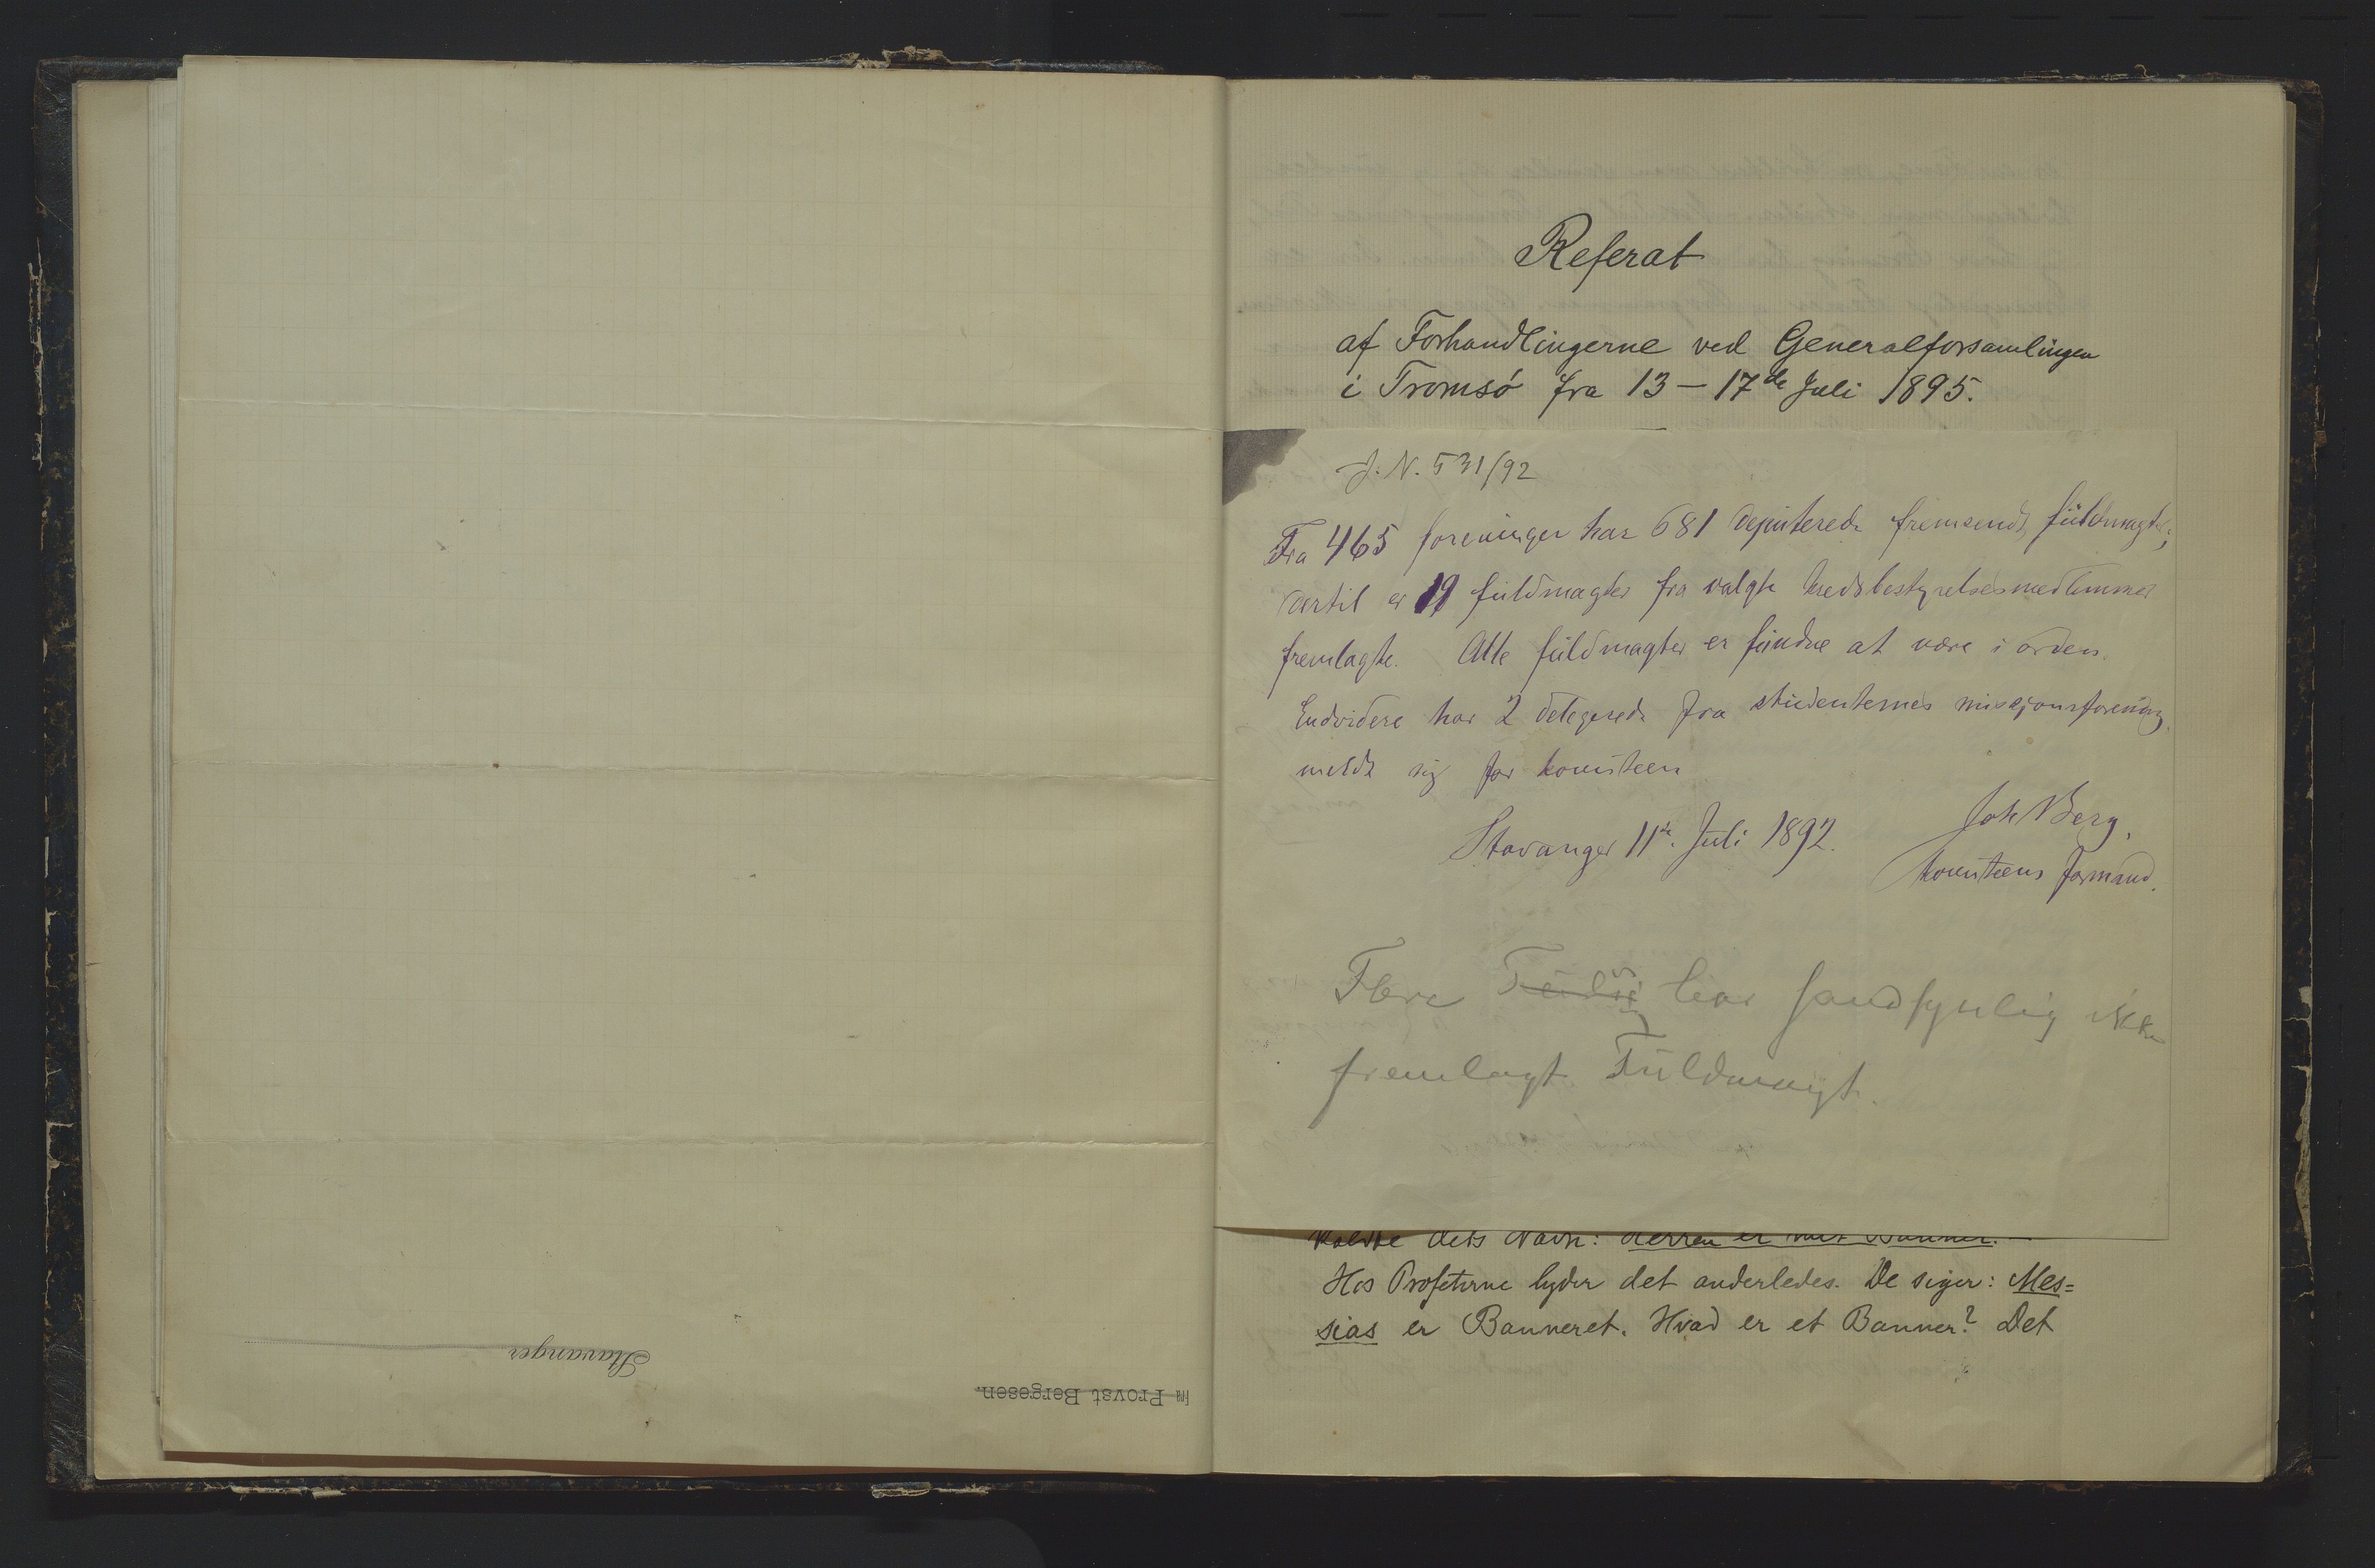 Stavanger
fra Provst Bergesen.
Referat
af Forhandlingerne ved Generalforsamlingen
i Tromsö fra 13 – 17de Juli 1895.
J. N. 531/92
Fra 465 foreninger har 681 deputerede fremsendt fuldmagter;
dertil er 19 fuldmagter fra valgte kredsbestyrelsesmedlemmer
fremlagte. Alle fuldmagter er fundne at være i orden.
Endvidere har 2 delegerede fra studenternes missjonsforening
meldt sig for komiteen
Stavanger 11te Juli 1892.
Joh Berg,
komiteens formand.
Flere har sandsynlig ikke
fremlagt Fuldmagt.
kaldte dets Navn: Herren er mit Banner. —
Hos Profeterne lyder det anderledes. De siger: Mes=
sias er Banneret. Hvad er et Banner? Det